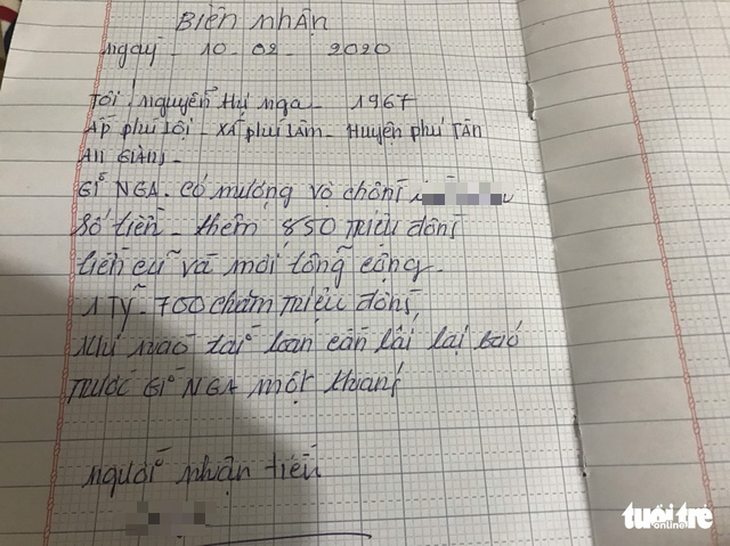 Biên nhận
ngay - 10 - 02 - 2020
Tôi: nguyễn thị nga - 1967
Ấp phú lội - xã phú lâm - Huyện phú Tân
An Giang -
Gỉ NGA. có mượng vợ chồng
Số tiền - thêm 850 triệu đồng
tiền cũ và mới tổng cộng.
1 Tỷ - 700 chăm triệu đồng,
khi nào tài loan cần lấi lại báo
trước Gỉ NGA một thang
người nhận tiền
tuổi trẻ
online